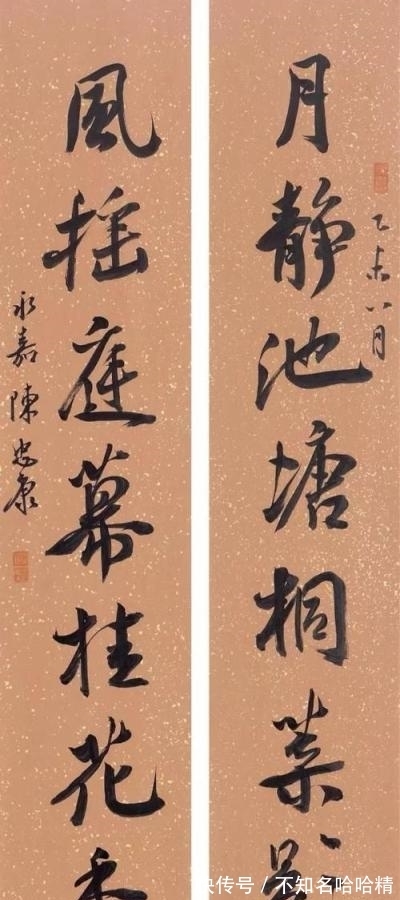 乙未八月
月静池塘桐葉
風摇庭幕桂花
永嘉陳忠康
快传号 / 不知名哈哈精